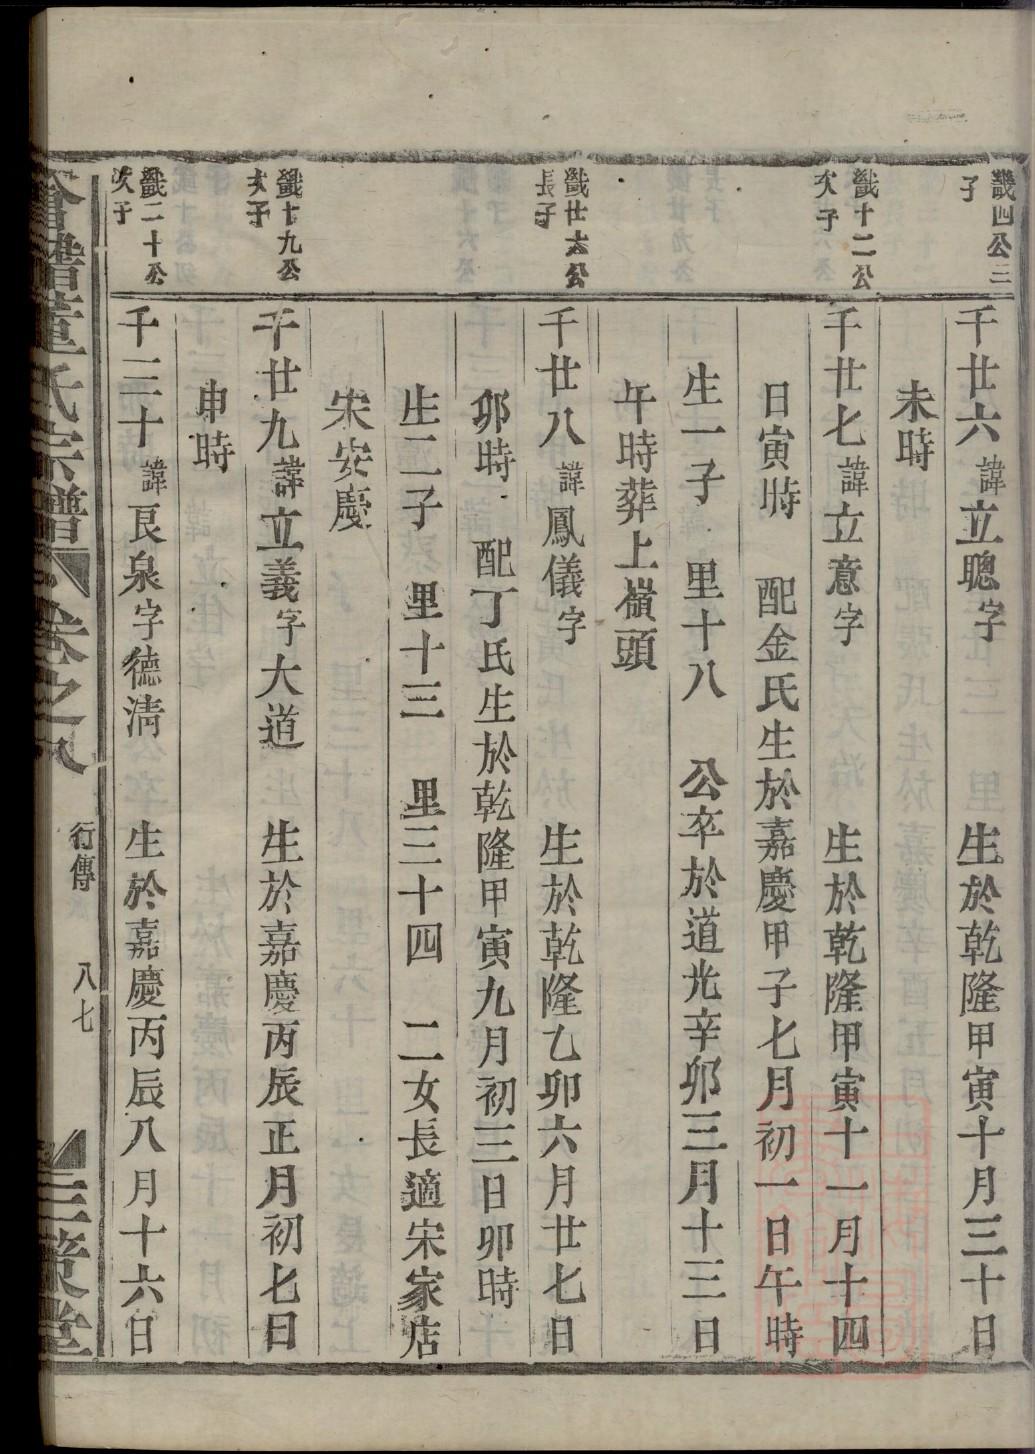 鐖四公三
子
千廿六諱立聰字　生於乾隆甲寅十月三十日
未時
鐖十二公
次子
千廿七諱立意字　生於乾隆甲寅十一月十四
日寅時　配金氏生於嘉慶甲子七月初一日午時
生一子　里十八　公卒於道光辛卯三月十三日
午時葬上嶺頭
鐖廿六公
長子
千廿八諱鳳儀字　生於乾隆乙卯六月廿七日
卯時　配丁氏生於乾隆甲寅九月初三日卯時
生二子　里十三　里三十四　二女長適宋家店
宋安慶
鐖十九公
次子
千廿九諱立義字大道　生於嘉慶丙辰正月初七日
申時
鐖二十公
次子
千三十諱良泉字德清　生於嘉慶丙辰八月十六日
董氏宗譜　卷之八　行傳　八七　三策堂